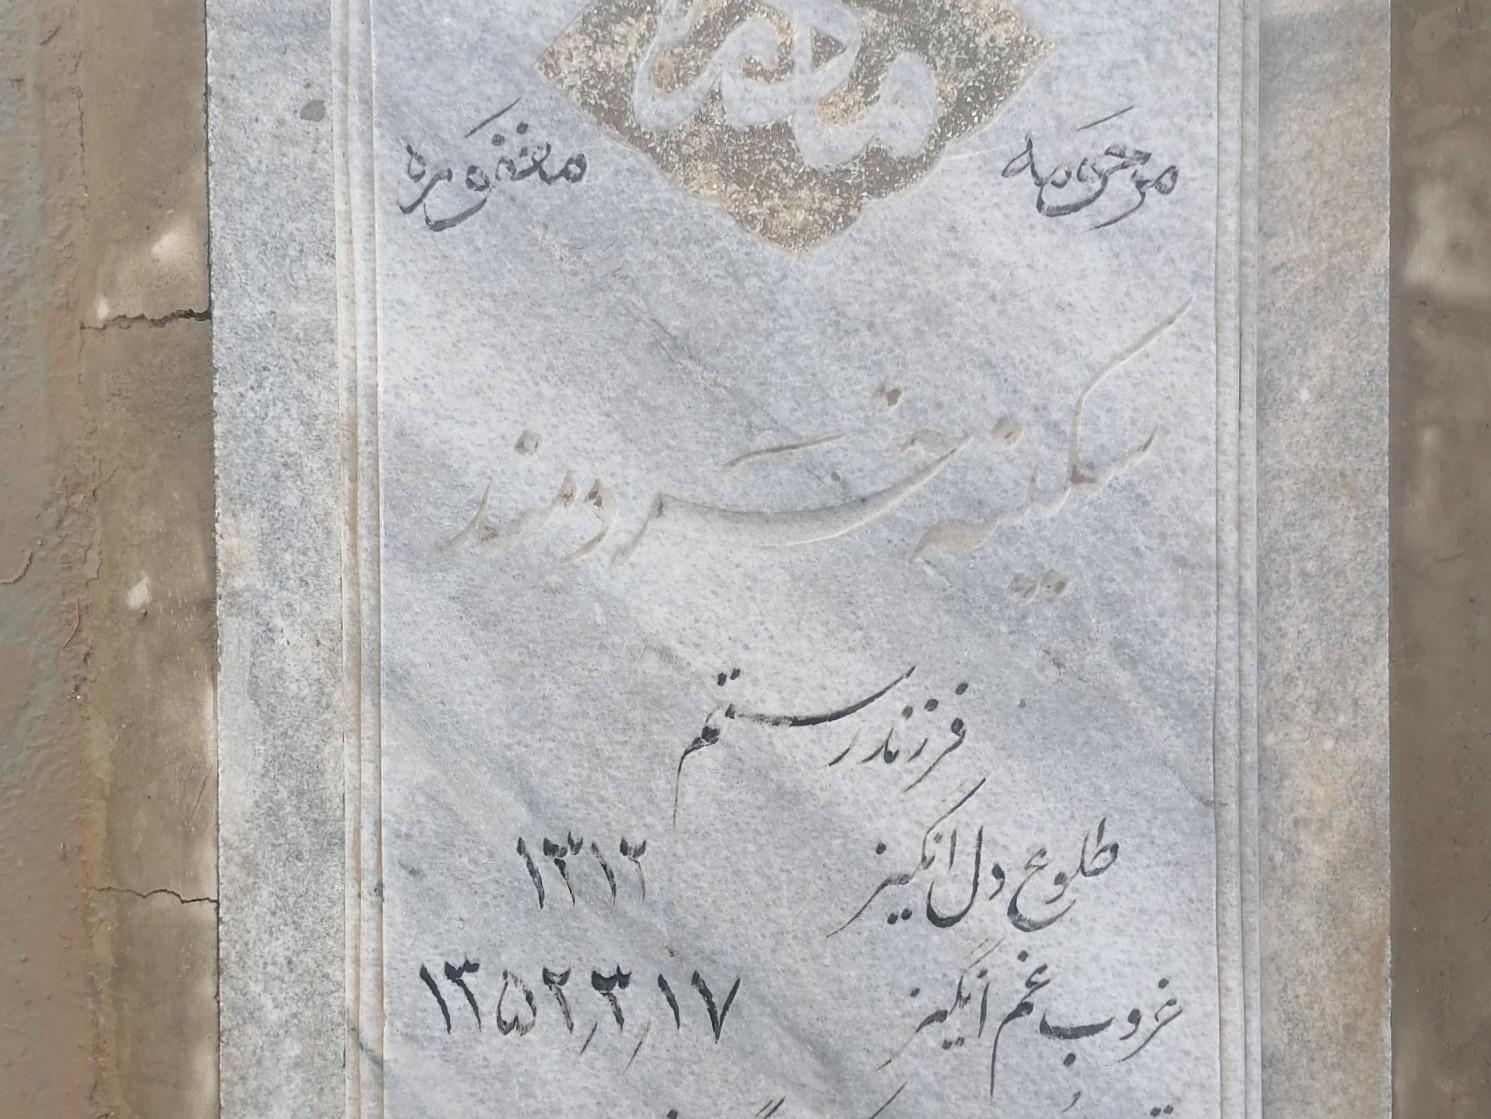 مادر
مرحومه مغفوره
سکینه خردمند
فرزند رستم
طلوع دل انگیز ۱۳۱۲
غروب غم انگیز ۱۳۵۲٫۳٫۱۷